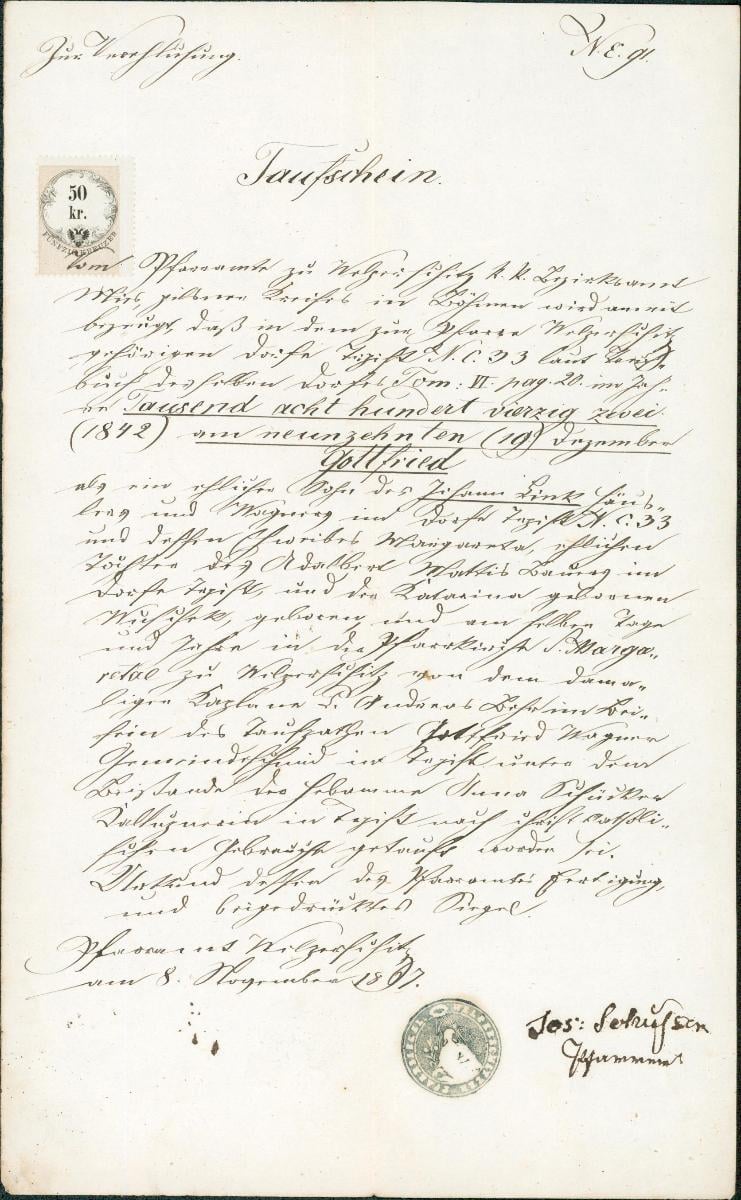 Zur Verehlichung.
N. E. 91.
Taufschein.
50
kr.
FÜNFZIG KREUZER
Vom Pfarramte zu Welperschitz k. k. Bezirksamt
Mies, pilsner Kreises in Böhmen wird anmit
bezeugt, daß in dem zur Pfarre Welperschitz
gehörigen Dorfe N. C. 33 laut Tauf-
buch desselben Dorfes Tom: VI. pag. 20. im Jah-
re Tausend acht hundert vierzig zwei
(1842) am neunzehnten (19) Dezember
Gottfried
als ein ehlicher Sohn des Johann Link Häus-
lers und Wagners im Dorfe N. C. 33
und dessen Eheweibes Margareta, ehlichen
Tochter des Adalbert Mattis Bauers im
Dorfe und der Katarina gebornen
geboren, und am selben Tage
und Jahre in der Pfarrkirche S. Marga-
retae zu Welperschitz von dem dama-
ligen Kaplane P. Andreas Behr im Bei-
sein des Taufpathen Gottfried Wagner
Gemeindeschmid in unter dem
Beistande der Hebamme Anna Schücker
in nach christkatholi-
schen Gebrauche getauft worden sei.
Urkund dessen des Pfarramtes Fertigung,
und beigedrücktes Siegel.
Pfarramt Welperschitz
am 8. November 1867.
Jos: Schusser
Pfarrer